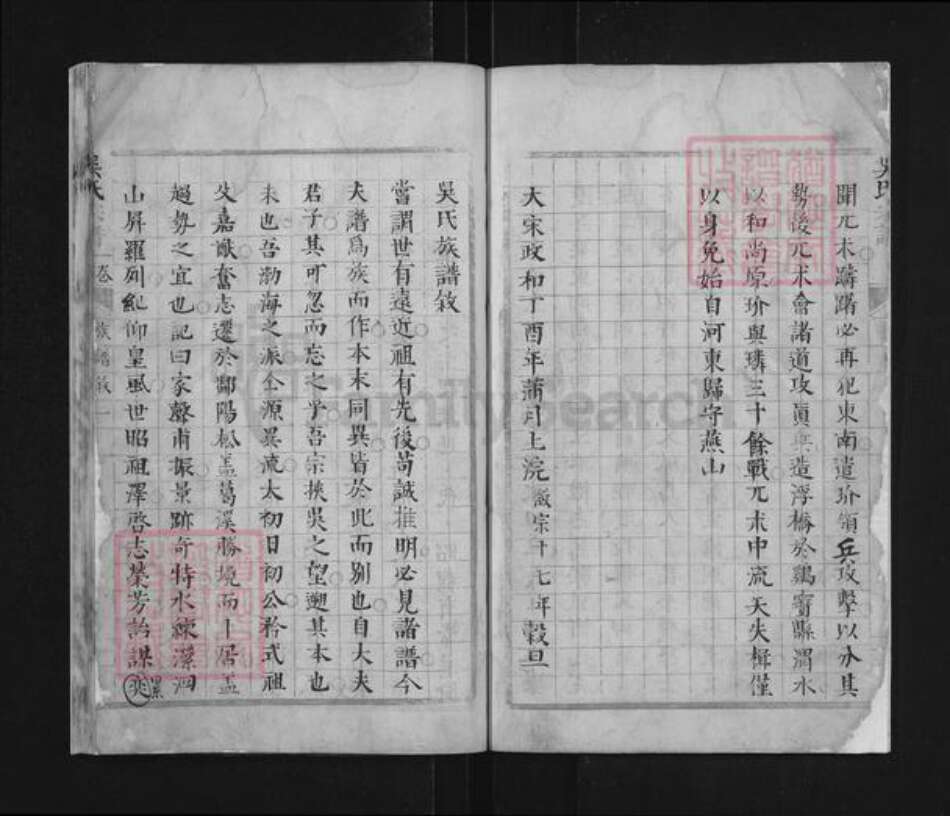 聞兀术躊躇必再犯東南遣玠領兵攻擊以分其
勢後兀术會諸道攻真兵造浮橋於鷄寶縣渭水
以和尚原玠與璘三十餘戰兀术中流矢失楫僅
以身免始自河東歸守燕山
大宋政和丁酉年蒲月上浣徽宗十七年穀旦
吳氏族譜敘
嘗謂世有遠近祖有先後苟誠推明必見諸譜今
夫譜爲族而作本末同異皆於此而別也自大夫
君子其可忽而忘之乎吾宗挾吳之望遡其本也
未也吾渤海之派仝源異流太初日初公矜式祖
父嘉猷奮志遷於鄱陽松盖葛溪勝境而卜居盖
趨勢之宜也記曰家聲甫振景跡奇特水練潔泗
山屏羅列紀仰皇風世昭祖澤啓志榮芳詒謀奕累
吳氏
卷
族譜敘
一
吳氏
FamilySearch